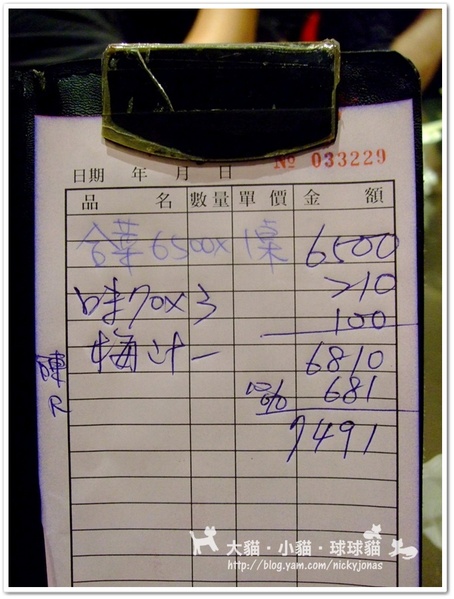 № 033229
日期 年 月 日
品 名 數量 單 價 金 額
合菜 6500x 1桌 6500
味70x3 210
梅汁一 100
6810
10% 681
7491
陳R
大貓・小貓・球球貓
http://blog.yam.com/nickyjonas